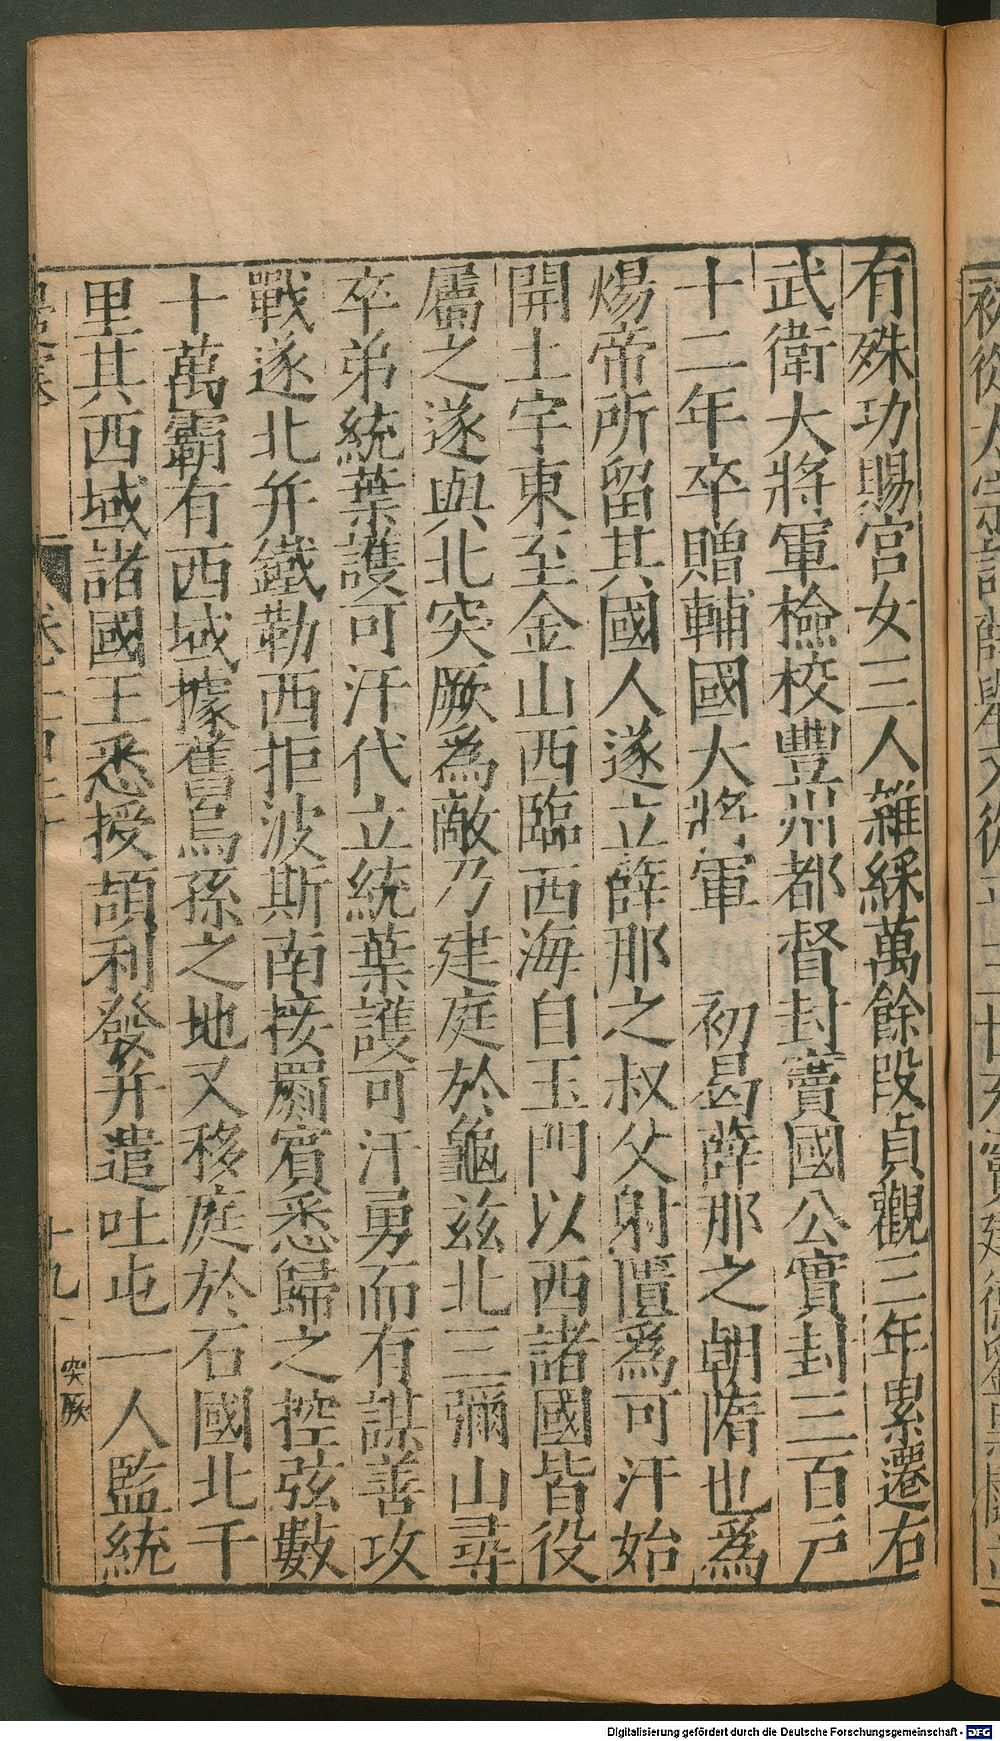 有殊功賜宮女三人雜綵萬餘段貞觀三年累遷右
武衛大將軍檢校豐州都督封竇國公實封三百戶
十二年卒贈輔國大將軍　初曷薩那之朝隋也為
煬帝所留其國人遂立薛那之叔父射匱為可汗始
開土宇東至金山西臨西海自玉門以西諸國皆役
屬之遂與北突厥為敵乃建庭於龜茲北三彌山尋
卒弟統葉護可汗代立統葉護可汗勇而有謀善攻
戰遂北并鐵勒西拒波斯南接罽賓悉歸之控弦數
十萬霸有西域據舊烏孫之地又移庭於石國北千
里其西域諸國王悉授頡利發并遣吐屯一人監統
十九
突厥
Digitalisierung gefördert durch die Deutsche Forschungsgemeinschaft - DFG